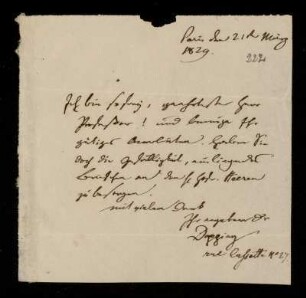 Paris den 21 März
1829.
Ich bin so frey, geehrtester Herr
Professor! und benuze Ihr
gütiges Anerbieten. Haben Sie
doch die Gefälligkeit, anliegendes
Briefchen an den H. Hofr. Heeren
zu besorgen.
mit vielem Dank
Ihr ergebenster
Depping
rue Cassette No 27